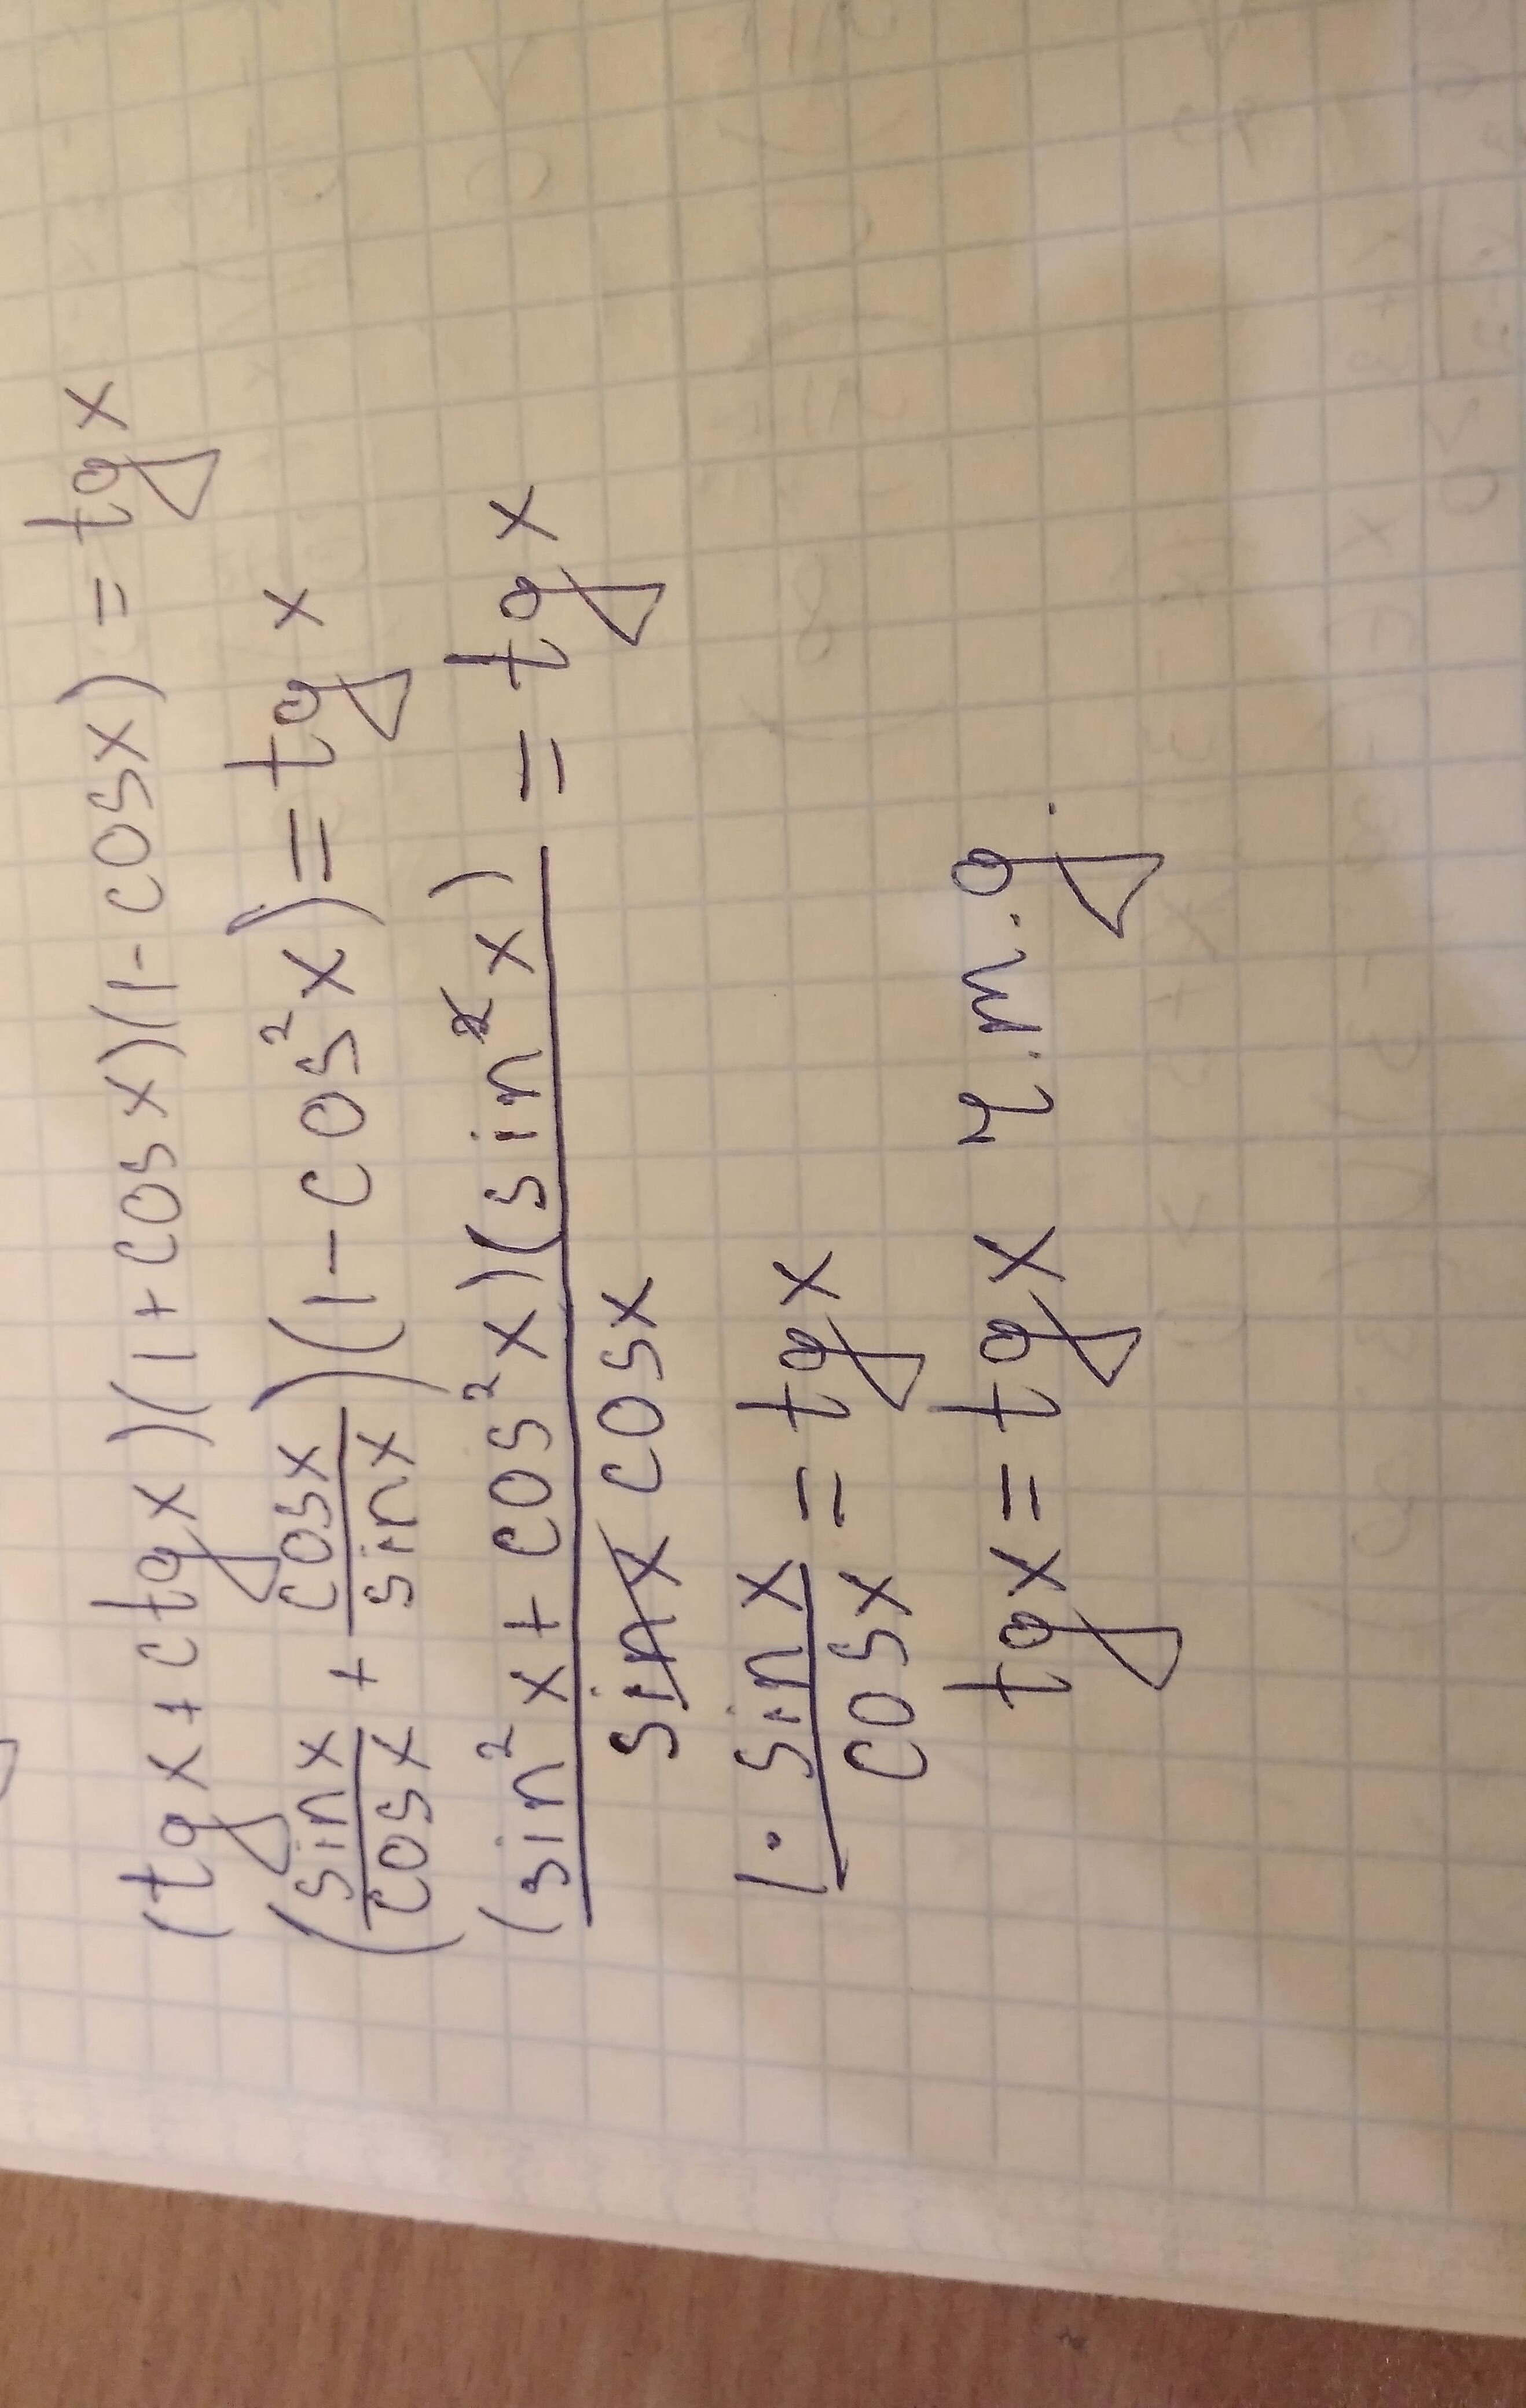 (tgx+ctgx)(1+cosx)(1-cosx) = tgx
(sinx/cosx + cosx/sinx)(1-cos²x) = tgx
(sin²x + cos²x)(sin²x) / sinx cosx = tgx
1 · sinx / cosx = tgx
tgx = tgx ч.т.g.